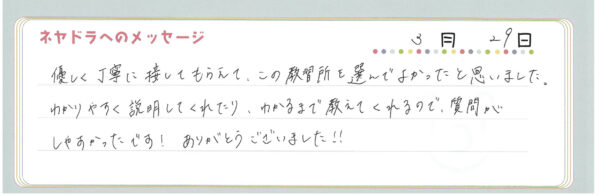 ネヤドラへのメッセージ
3月 29日
優しく丁寧に接してもらえて、この教習所を選んでよかったと思いました。
わかりやすく説明してくれたり、わかるまで教えてくれるので、質問が
しやすかったです! ありがとうございました!!